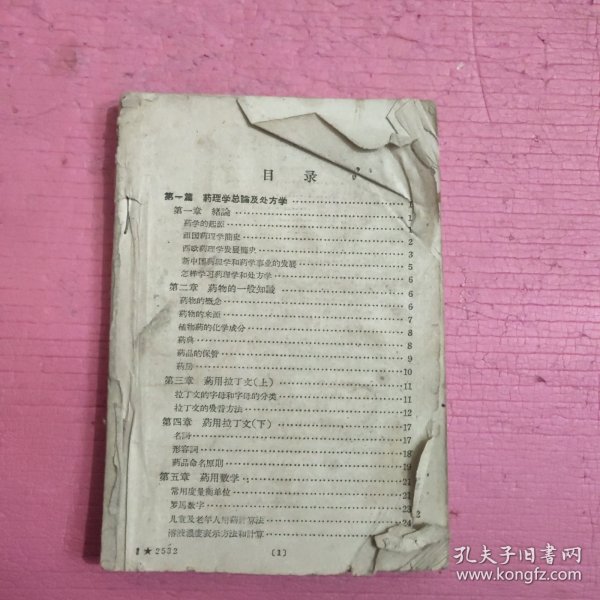 目录
第一篇 葯理学总論及处方学 1
第一章 緒論 1
药学的起源 1
祖国葯理学簡史 2
西欧葯理学发展簡史 3
新中国葯理学和葯学事业的发展 5
怎样学习葯理学和处方学 6
第二章 葯物的一般知識 6
葯物的概念 6
葯物的来源 7
植物葯的化学成分 8
葯典 8
葯品的保管 9
葯房 10
第三章 葯用拉丁文(上) 11
拉丁文的字母和字母的分类 11
拉丁文的发音方法 12
第四章 葯用拉丁文(下) 17
名詞 17
形容詞 18
葯品命名原則 19
第五章 葯用数学 21
常用度量衡单位 21
罗馬数字
儿童及老年人用葯計算法
溶液濃度表示方法和計算 24
★2532
(1)
孔夫子旧书网
www.kongfz.com